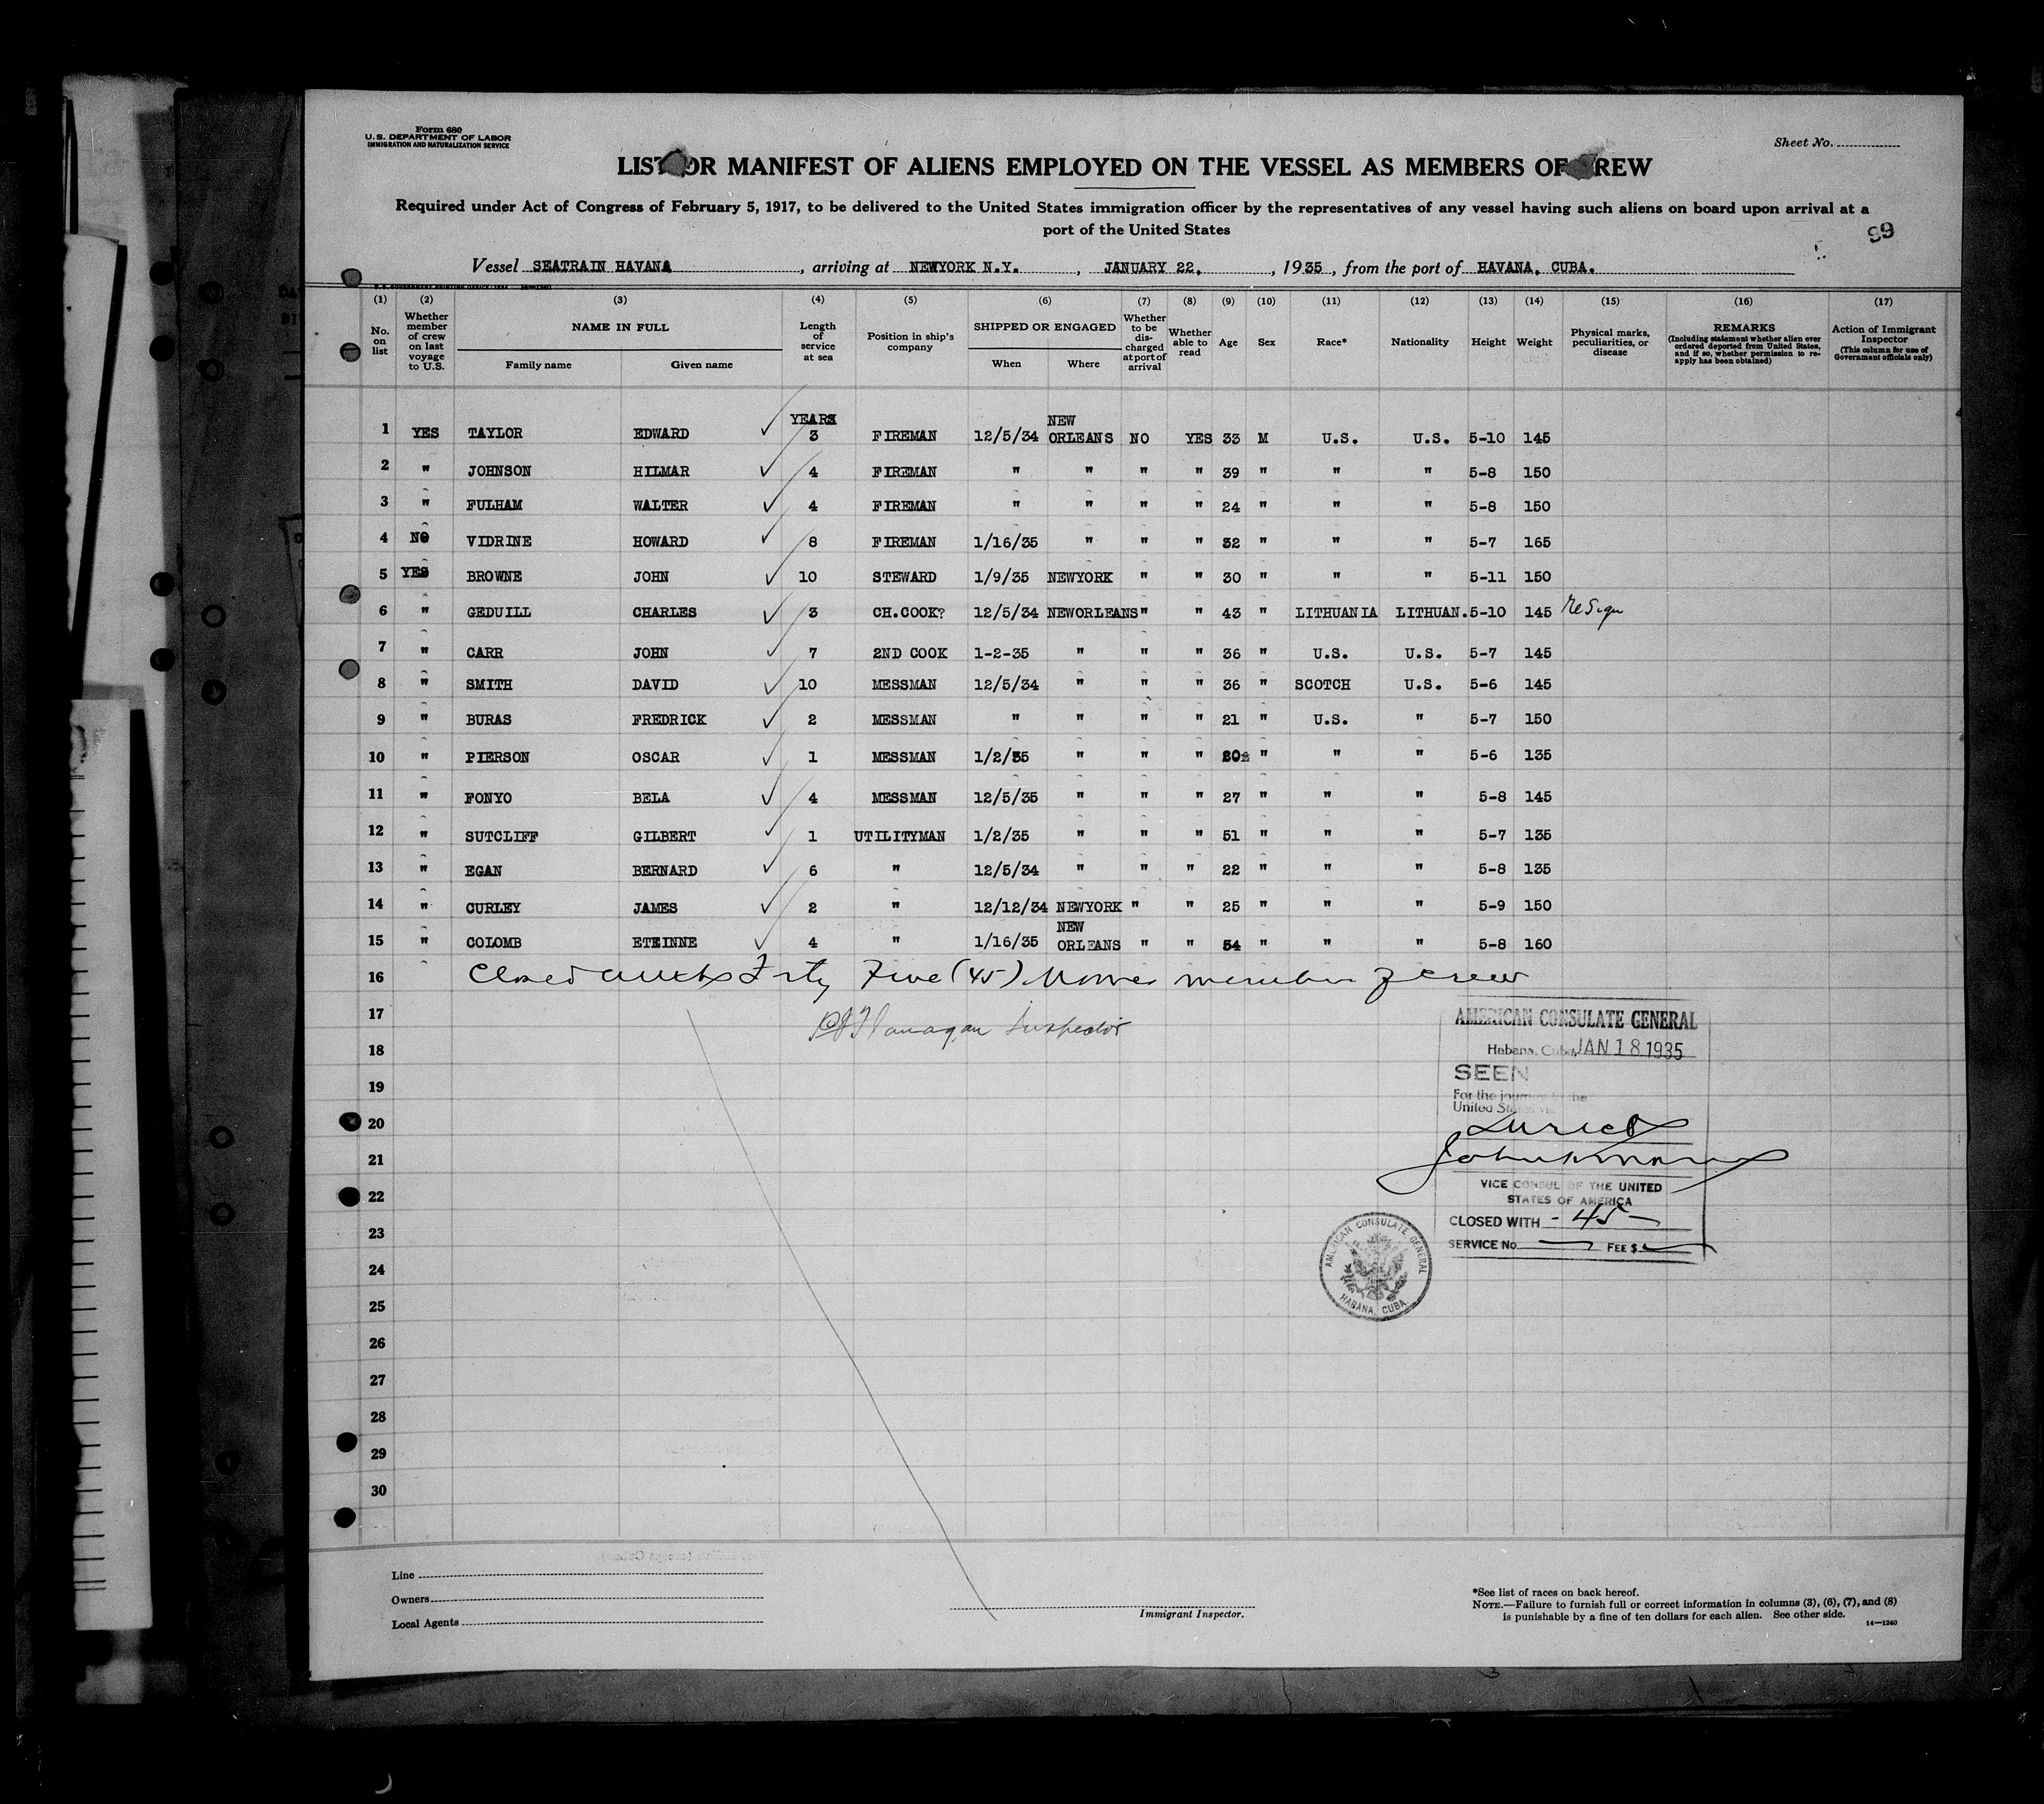 Form 680
U. S. DEPARTMENT OF LABOR
IMMIGRATION AND NATURALIZATION SERVICE
Sheet No.
LIST OR MANIFEST OF ALIENS EMPLOYED ON THE VESSEL AS MEMBERS OF CREW
Required under Act of Congress of February 5, 1917, to be delivered to the United States immigration officer by the representatives of any vessel having such aliens on board upon arrival at a
port of the United States
99
Vessel SEATRAIN HAVANA, arriving at NEWYORK N.Y., JANUARY 22, 1935, from the port of HAVANA, CUBA.
(1) (2) (3) (4) (5) (6) (7) (8) (9) (10) (11) (12) (13) (14) (15) (16) (17)
No. on list
Whether member of crew on last voyage to U.S.
NAME IN FULL
Family name Given name
Length of service at sea
Position in ship's company
SHIPPED OR ENGAGED
When Where
Whether to be discharged at port of arrival
Whether able to read
Age
Sex
Race*
Nationality
Height
Weight
Physical marks, peculiarities, or disease
REMARKS
(Including statement whether alien ever ordered deported from United States, and if so, whether permission to reapply has been obtained)
Action of Immigrant Inspector
(This column for use of Government officials only)
YEARS NEW
1 YES TAYLOR EDWARD ✓ 3 FIREMAN 12/5/34 ORLEANS NO YES 33 M U.S. U.S. 5-10 145
2 " JOHNSON HILMAR ✓ 4 FIREMAN " " " " 39 " " " 5-8 150
3 " FULHAM WALTER ✓ 4 FIREMAN " " " " 24 " " " 5-8 150
4 NO VIDRINE HOWARD ✓ 8 FIREMAN 1/16/35 " " " 32 " " " 5-7 165
5 YES BROWNE JOHN ✓ 10 STEWARD 1/9/35 NEWYORK " " 30 " " " 5-11 150
6 " GEDUILL CHARLES ✓ 3 CH.COOK? 12/5/34 NEWORLEANS " " 43 " LITHUANIA LITHUAN. 5-10 145
7 " CARR JOHN ✓ 7 2ND COOK 1-2-35 " " " 36 " U.S. U.S. 5-7 145
8 " SMITH DAVID ✓ 10 MESSMAN 12/5/34 " " " 36 " SCOTCH U.S. 5-6 145
9 " BURAS FREDRICK ✓ 2 MESSMAN " " " " 21 " U.S. " 5-7 150
10 " PIERSON OSCAR ✓ 1 MESSMAN 1/2/35 " " " 20 " " " 5-6 135
11 " FONYO BELA ✓ 4 MESSMAN 12/5/35 " " " 27 " " " 5-8 145
12 " SUTCLIFF GILBERT ✓ 1 UTILITYMAN 1/2/35 " " " 51 " " " 5-7 135
13 " EGAN BERNARD ✓ 6 " 12/5/34 " " " 22 " " " 5-8 135
14 " CURLEY JAMES ✓ 2 " 12/12/34 NEWYORK " " 25 " " " 5-9 150
NEW
15 " COLOMB ETEINNE ✓ 4 " 1/16/35 ORLEANS " " 34 " " " 5-8 160
16 Closed with Forty Five (45) Names members of crew
17 Flanagan Inspector
18
19
20
21
22
23
24
25
26
27
28
29
30
AMERICAN CONSULATE GENERAL
Habana, Cuba JAN 18 1935
SEEN
For the journey to the
United States via
Direct
VICE CONSUL OF THE UNITED
STATES OF AMERICA
CLOSED WITH -45-
SERVICE No. FEE $
AMERICAN CONSULATE GENERAL
HABANA, CUBA
Line
Owners
Local Agents
Immigrant Inspector.
*See list of races on back hereof.
NOTE.—Failure to furnish full or correct information in columns (3), (6), (7), and (8)
is punishable by a fine of ten dollars for each alien. See other side.
14—1240